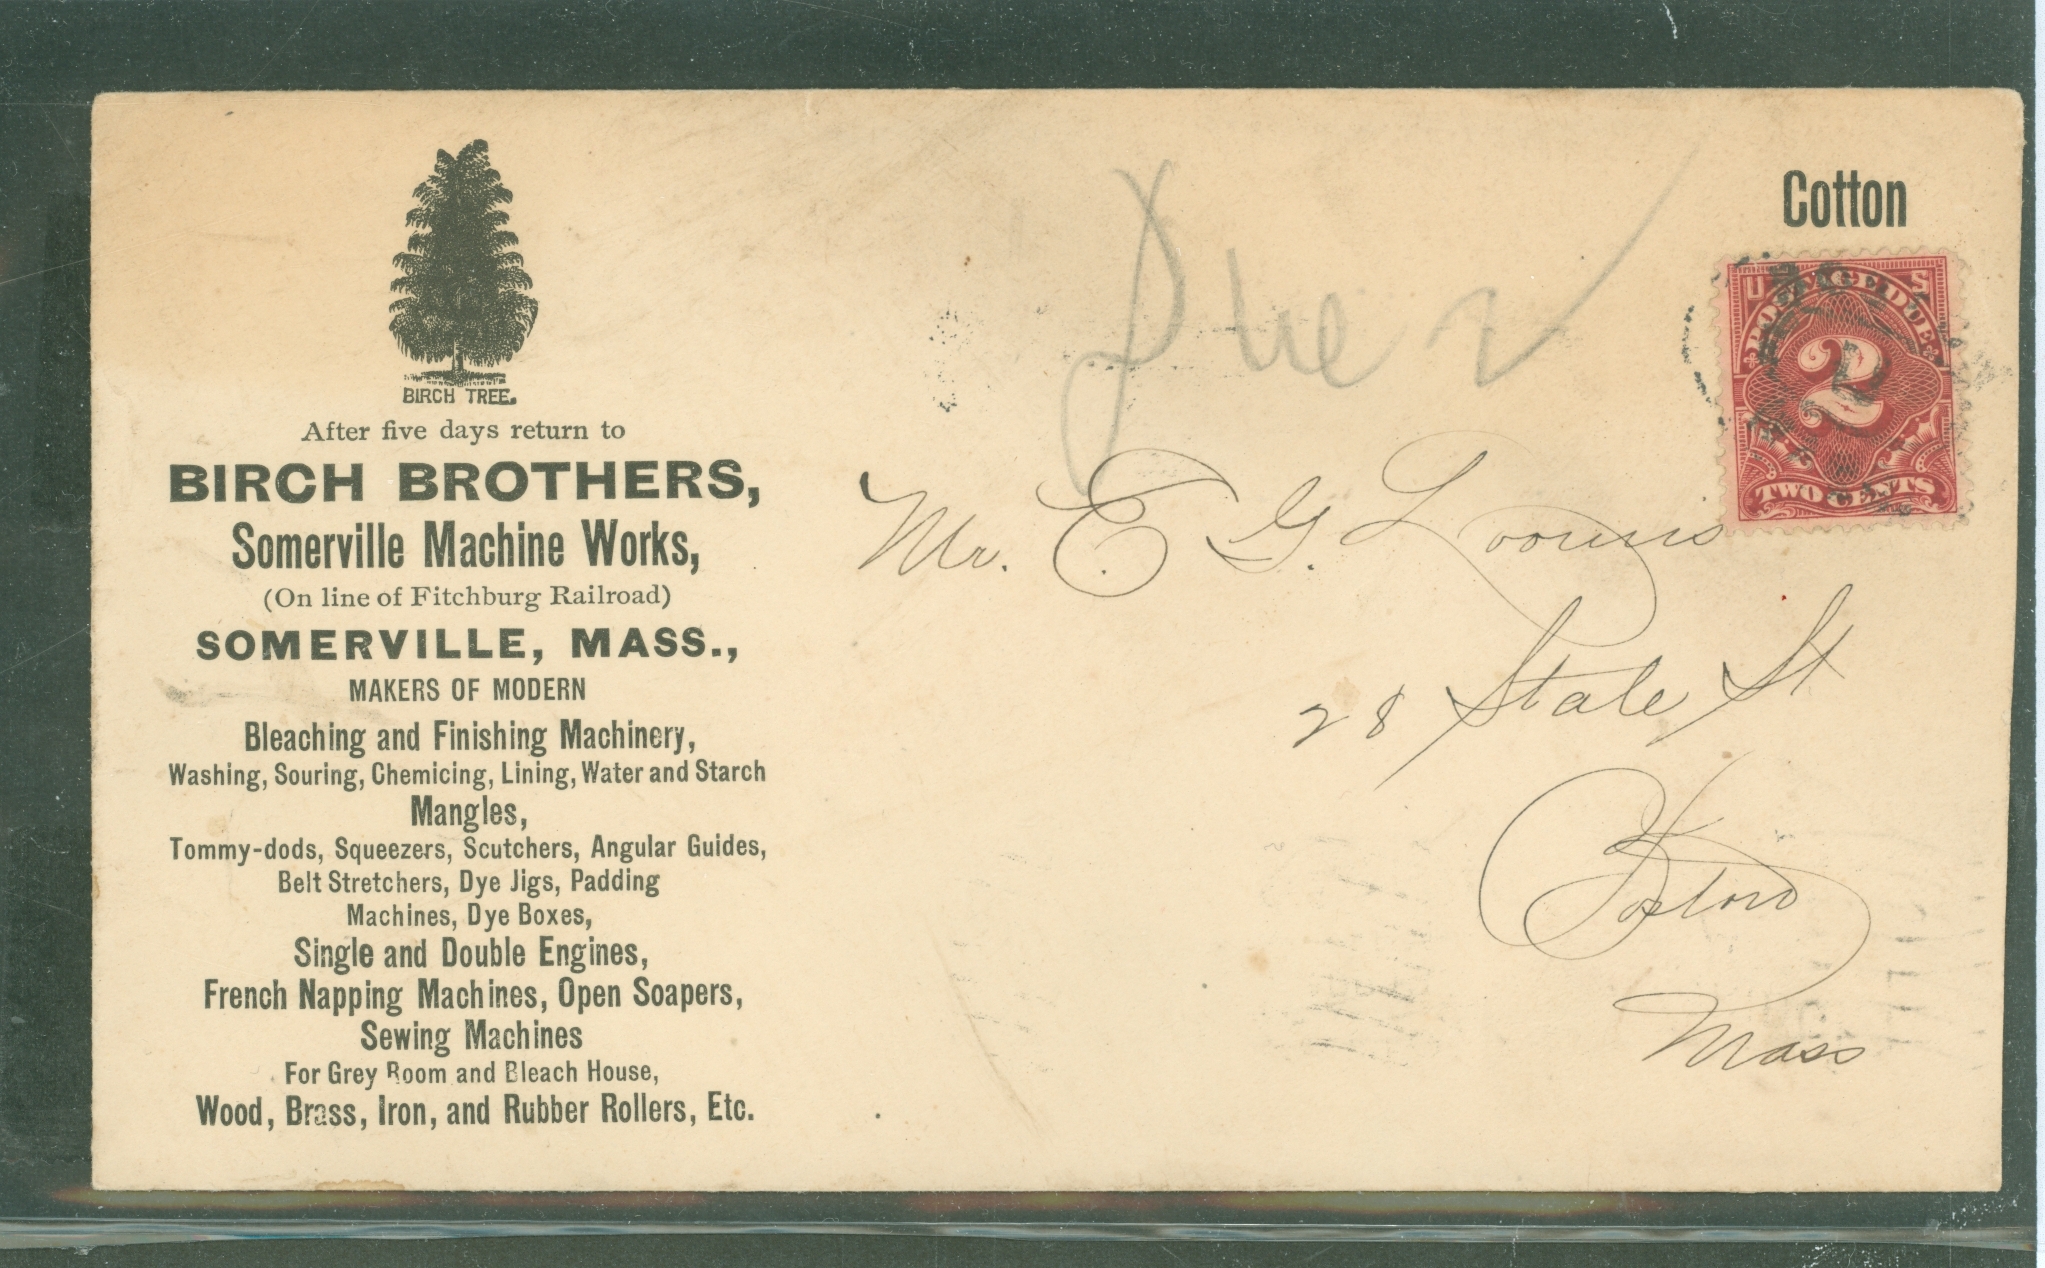 BIRCH TREE.
After five days return to
BIRCH BROTHERS,
Somerville Machine Works,
(On line of Fitchburg Railroad)
SOMERVILLE, MASS.,
MAKERS OF MODERN
Bleaching and Finishing Machinery,
Washing, Souring, Chemicing, Lining, Water and Starch
Mangles,
Tommy-dods, Squeezers, Scutchers, Angular Guides,
Belt Stretchers, Dye Jigs, Padding
Machines, Dye Boxes,
Single and Double Engines,
French Napping Machines, Open Soapers,
Sewing Machines
For Grey Room and Bleach House,
Wood, Brass, Iron, and Rubber Rollers, Etc.
Due 2
Cotton
U S
POSTAGE DUE
2
TWO CENTS
Mr. E. G. Loomis
28 State St
Boston
Mass